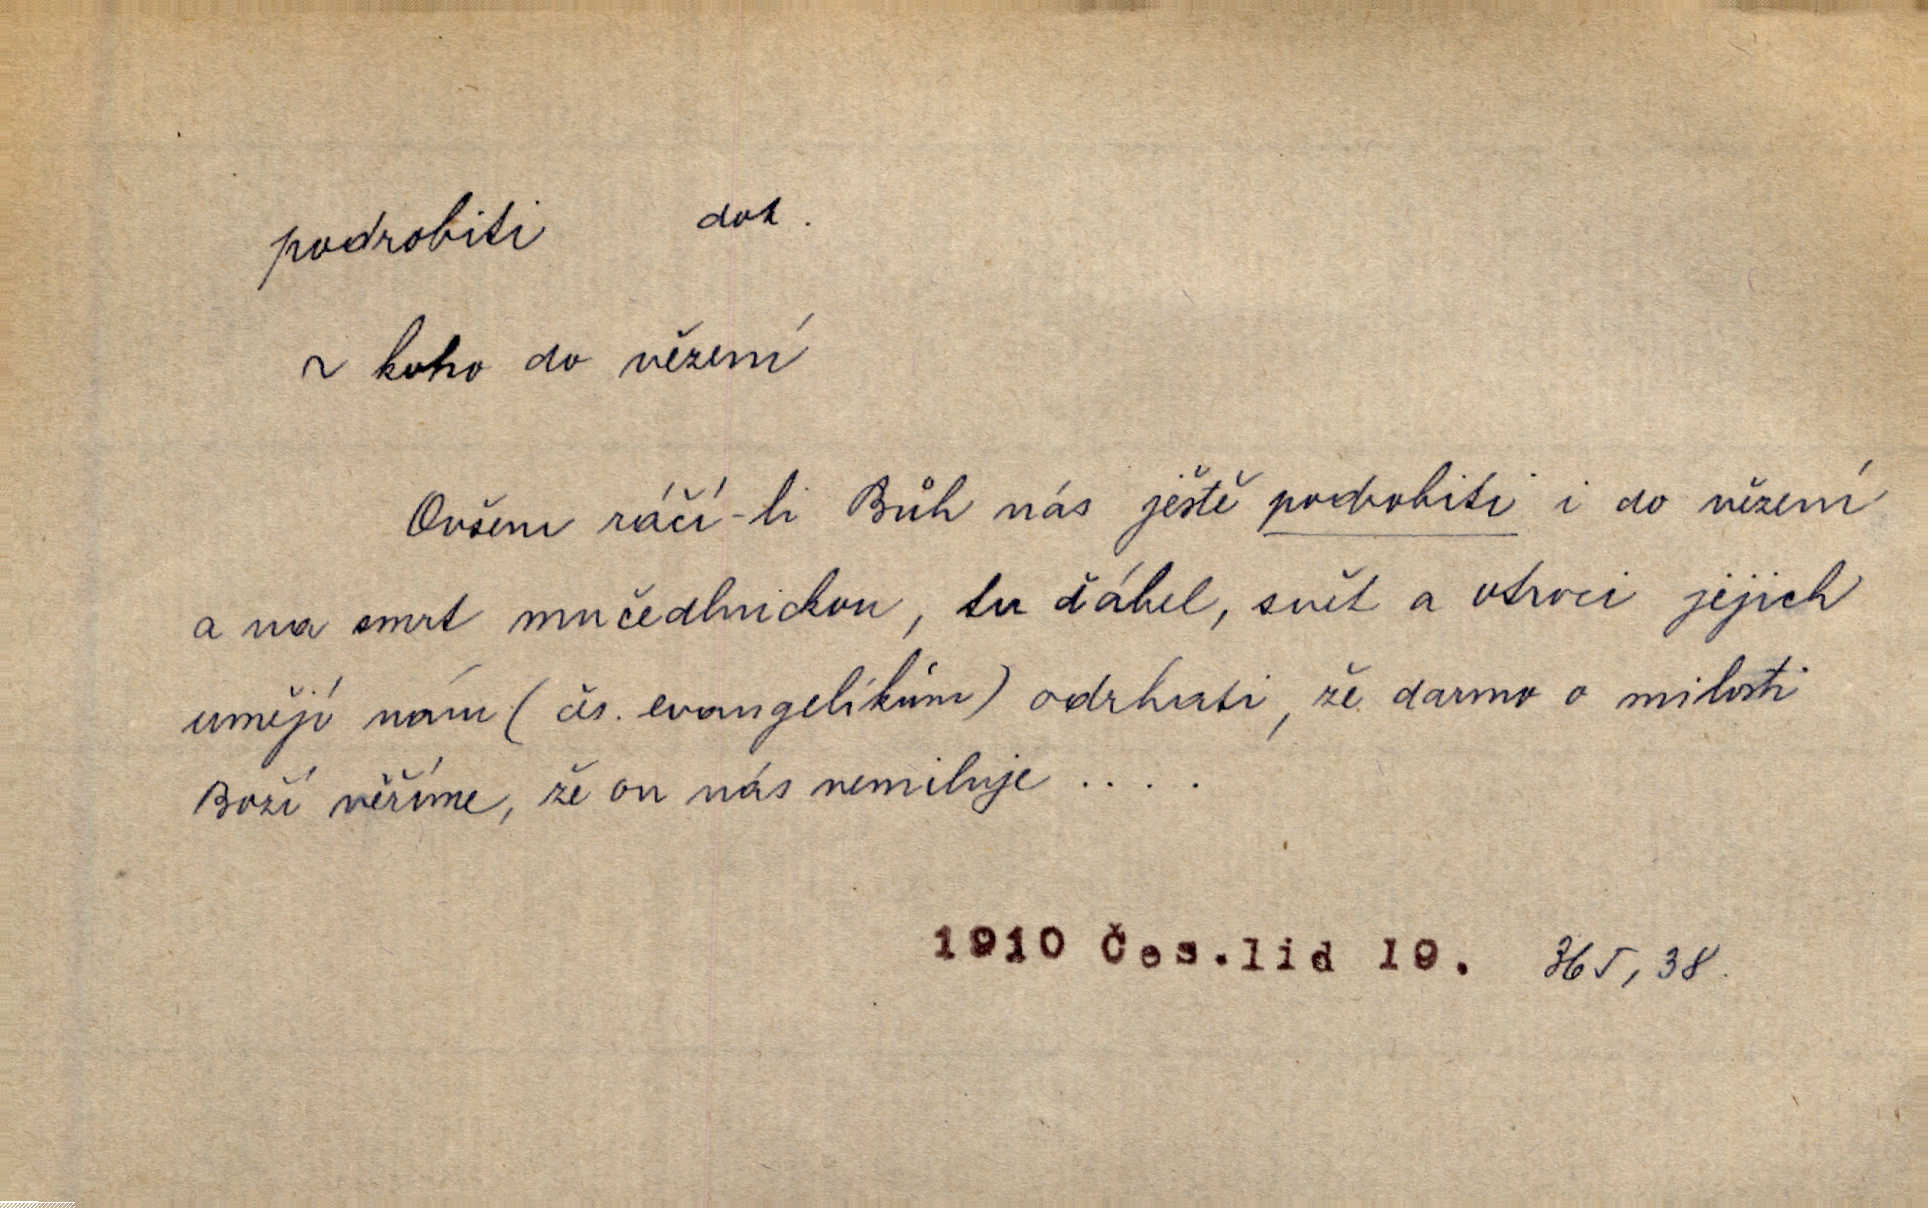 podrobiti dok.
~ koho do vězení
Ovšem ráčí-li Bůh nás ještě podrobiti i do vězení
a na smrt mučedlnickou, tu ďábel, svět a otroci jejich
umějí nám (čes. evangelíkům) odrhati, že darmo o milosti
Boží věříme, že on nás nemiluje ....
1910 Čes.lid 19. 365, 38.